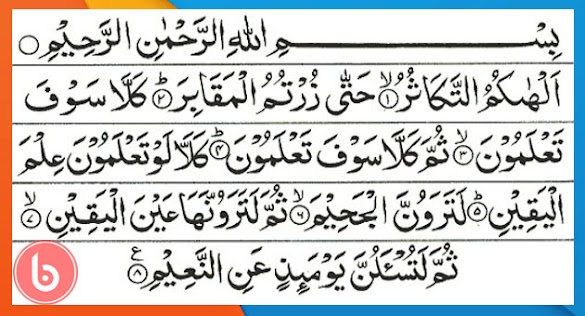 بِسْمِ اللهِ الرَّحْمٰنِ الرَّحِيْمِ ○
اَلْهٰىكُمُ التَّكَاثُرُۙ ١ حَتّٰى زُرْتُمُ الْمَقَابِرَؕ ٢ كَلَّا سَوْفَ
تَعْلَمُوْنَۙ ٣ ثُمَّ كَلَّا سَوْفَ تَعْلَمُوْنَؕ ٤ كَلَّا لَوْ تَعْلَمُوْنَ عِلْمَ
الْيَقِيْنِؕ ٥ لَتَرَوُنَّ الْجَحِيْمَۙ ٦ ثُمَّ لَتَرَوُنَّهَا عَيْنَ الْيَقِيْنِۙ ٧
ثُمَّ لَتُسْـَٔلُنَّ يَوْمَىِٕذٍ عَنِ النَّعِيْمِ ٨ ع
b